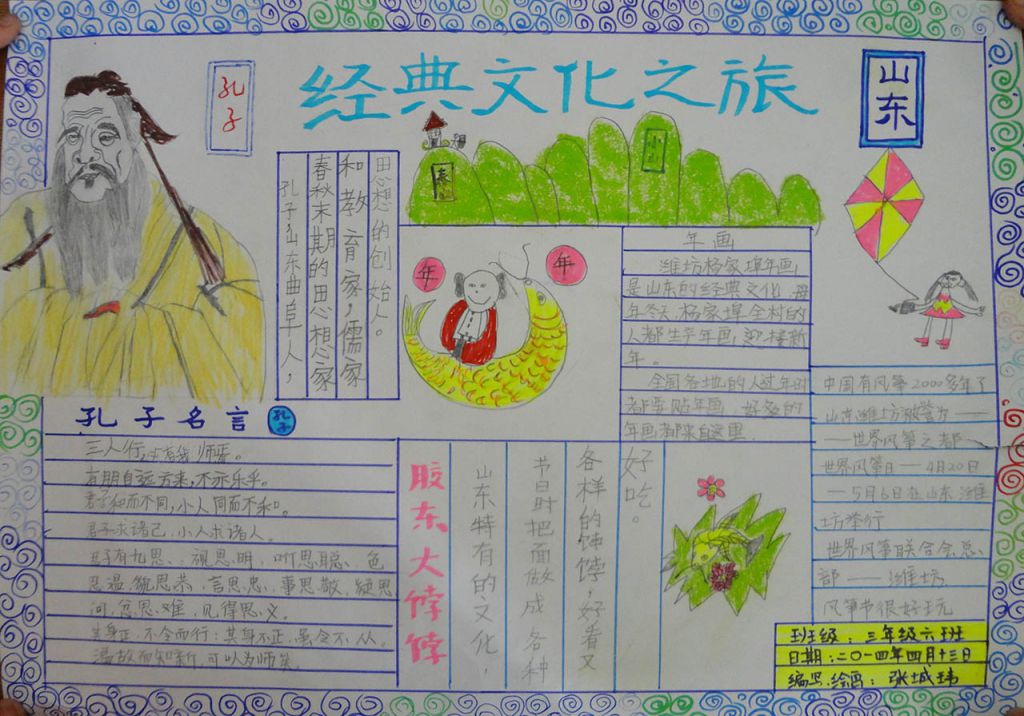 经典文化之旅
孔子
山东
孔子山东曲阜人，
春秋末期的思想家
和教育家，儒家
思想的创始人。
泰山
年
年
年画
潍坊杨家埠年画，
是山东的经典文化，每
年冬天，杨家埠全村的
人都生产年画，迎接新
年。
全国各地的人过年时
都要贴年画，好多的
年画都来自这里。
中国有风筝2000多年了
山东潍坊被誉为——
——世界风筝之都
世界风筝日——4月20日
—5月6日在山东潍
坊举行
世界风筝联合会总
部——潍坊
风筝节很好玩
孔子名言
孔子
三人行，必有我师焉。
有朋自远方来，不亦乐乎。
君子和而不同，小人同而不和。
君子求诸己，小人求诸人。
君子有九思：视思明，听思聪，色
思温，貌思恭，言思忠，事思敬，疑思
问，忿思难，见得思义。
其身正，不令而行；其身不正，虽令不从。
温故而知新，可以为师矣。
胶东大饽饽
山东特有的文化，
节日时把面做成各种
各样的饽饽，好看又
好吃。
班级：三年级六班
日期：二〇一四年四月十三日
编写.绘画：张城玮